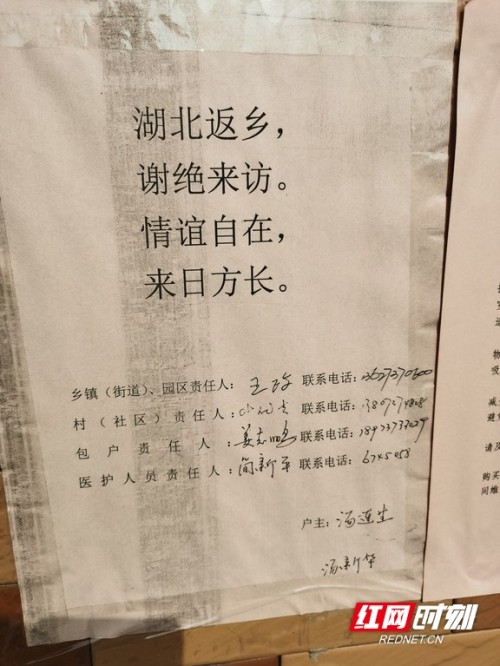 湖北返乡，
谢绝来访。
情谊自在，
来日方长。
乡镇（街道）、园区责任人：王 联系电话：
村（社区）责任人： 联系电话：
包户责任人：姜志鹏 联系电话：
医护人员责任人：简新平 联系电话：
户主：汤连生
汤新华
物
吸
减
避
请及
购买
间维
红网时刻
REDNET.CN